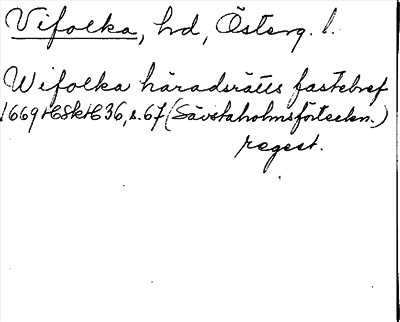 Vifolka, hd, Österg. l.
Wifolka häradsrätts fastebref
1669 HSkH 36, s. 67 (Sävstaholmsförteckn.)
regest.